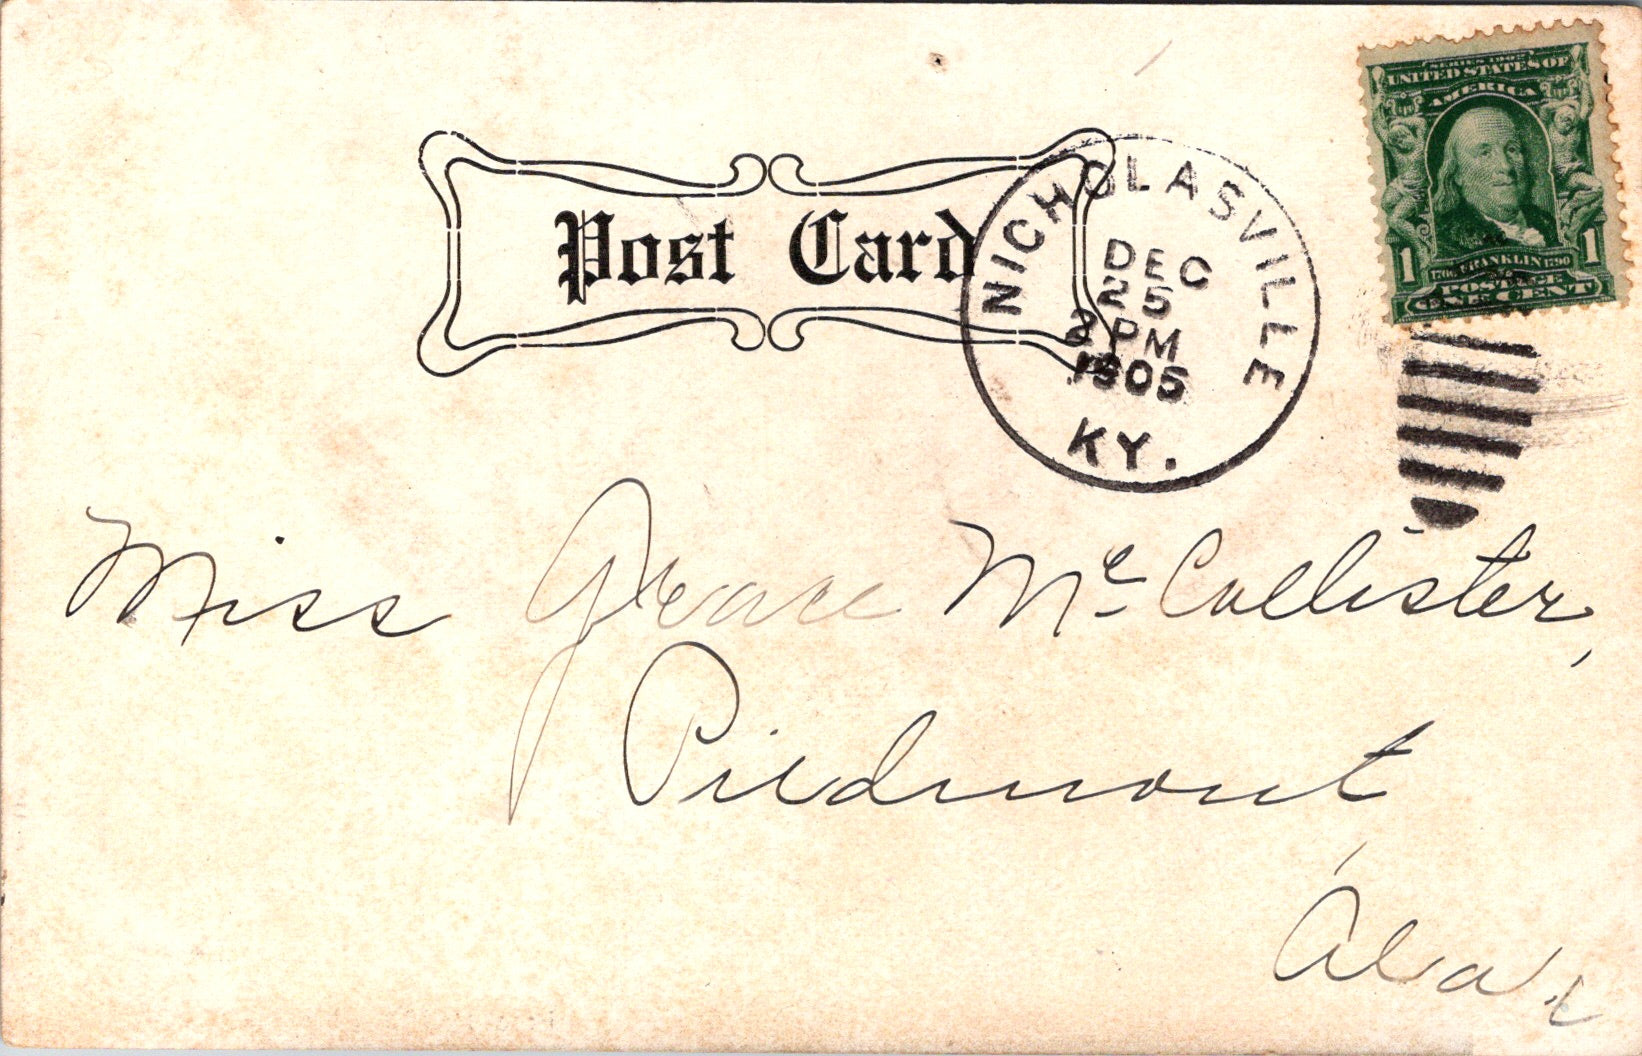 SERIES 1902
UNITED STATES OF
AMERICA
1 1
1706 FRANKLIN 1790
POSTAGE
ONE CENT
Post Card
NICHOLASVILLE
DEC
25
2 PM
1905
KY.
Miss Grace McCollister,
Piedmont
Ala.